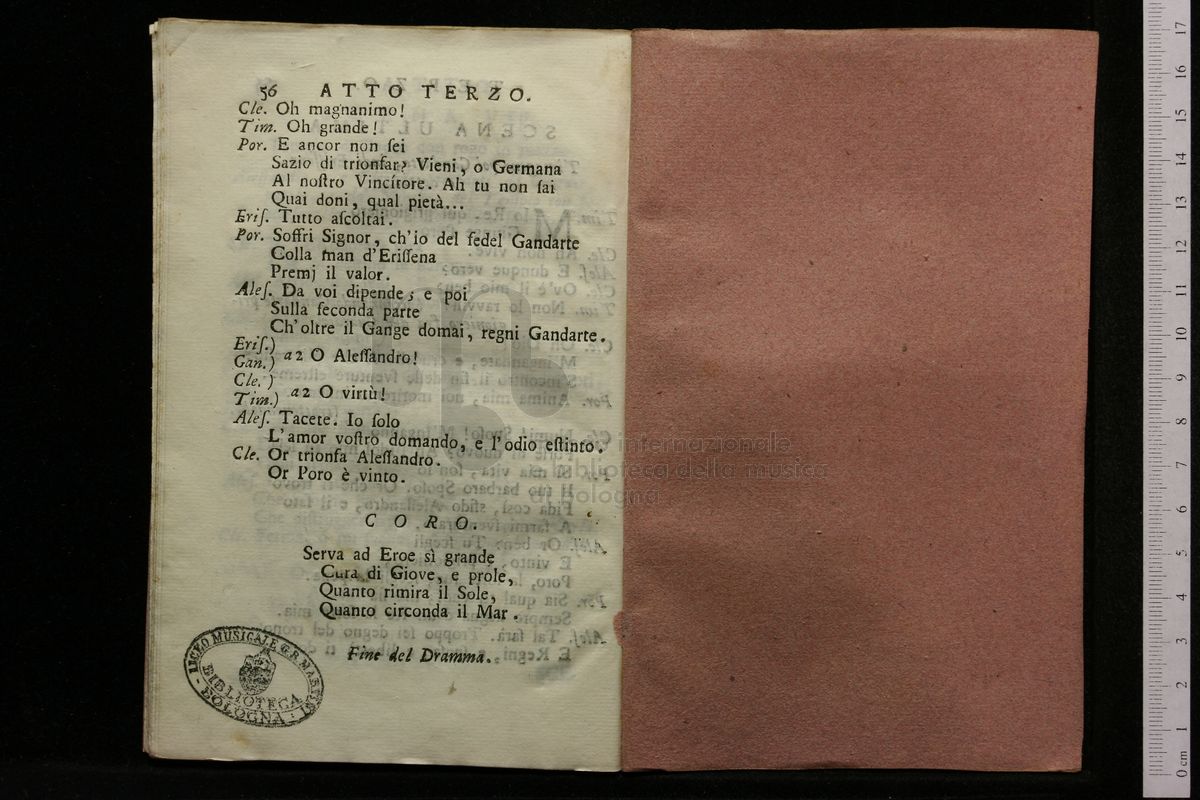 56 ATTO TERZO.
Cle. Oh magnanimo!
Tim. Oh grande!
Por. E ancor non ſei
Sazio di trionfar? Vieni, o Germana
Al noſtro Vincitore. Ah tu non ſai
Quai doni, qual pietà...
Eriſ. Tutto aſcoltai.
Por. Soffri Signor, ch'io del fedel Gandarte
Colla man d'Eriſſena
Premj il valor.
Aleſ. Da voi dipende; e poi
Sulla ſeconda parte
Ch'oltre il Gange domai, regni Gandarte.
Eriſ.)
Gan.) a2 O Aleſſandro!
Cle.)
Tim.) a2 O virtù!
Aleſ. Tacete. Io ſolo
L'amor voſtro domando, e l'odio eſtinto.
Cle. Or trionfa Aleſſandro.
Or Poro è vinto.
CORO.
Serva ad Eroe sì grande
Cura di Giove, e prole,
Quanto rimira il Sole,
Quanto circonda il Mar.
Fine del Dramma.
LICEO MUSICALE G.B. MARTINI
BIBLIOTECA
BOLOGNA
museo internazionale
e biblioteca della musica
di Bologna
0 cm 1 2 3 4 5 6 7 8 9 10 11 12 13 14 15 16 17